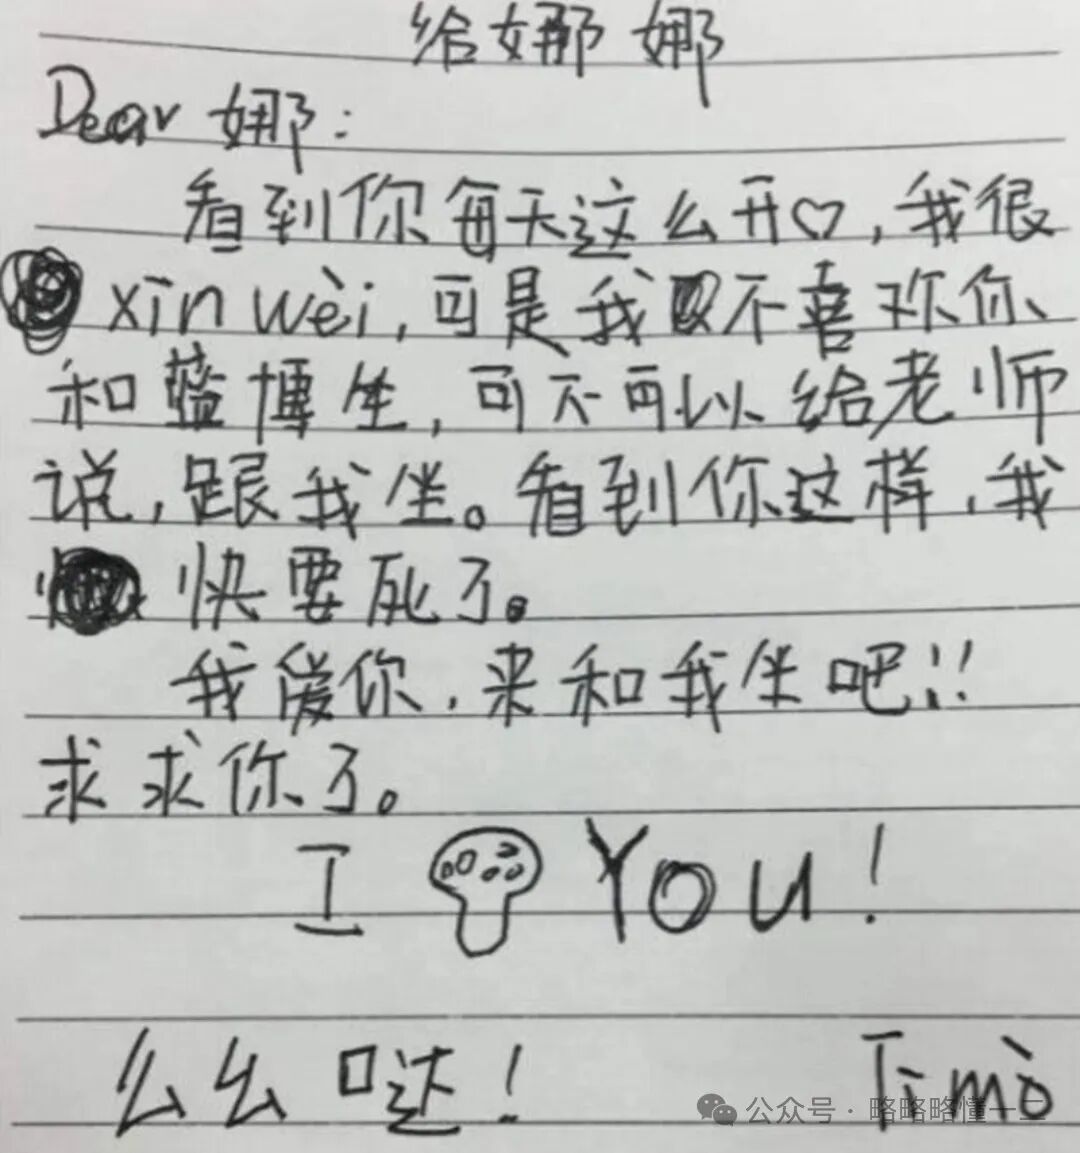 给娜娜
Dear 娜：
看到你每天这么开♡，我很
xin wèi，可是我不喜欢你
和蓝博坐，可不可以给老师
说，跟我坐。看到你这样，我
快要死了。
我爱你，来和我坐吧!!
求求你了。
I You!
么么哒!
Timò
公众号·略略略懂一二